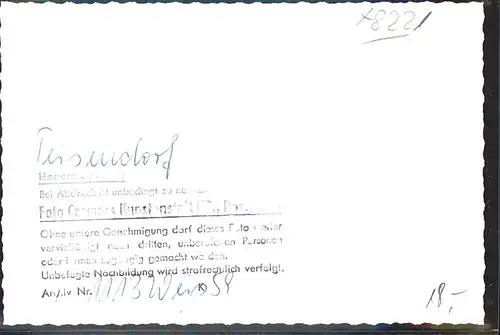 x8221
Tessendorf
Bei Abdruck ist unbedingt zu
Foto
Ohne unsere Genehmigung darf dieses Foto weder
vervielfältigt noch dritten, unberufenen Personen
oder Firmen zugängig gemacht werden.
Unbefugte Nachbildung wird strafrechlich verfolgt.
Archiv Nr. 1113
18,-